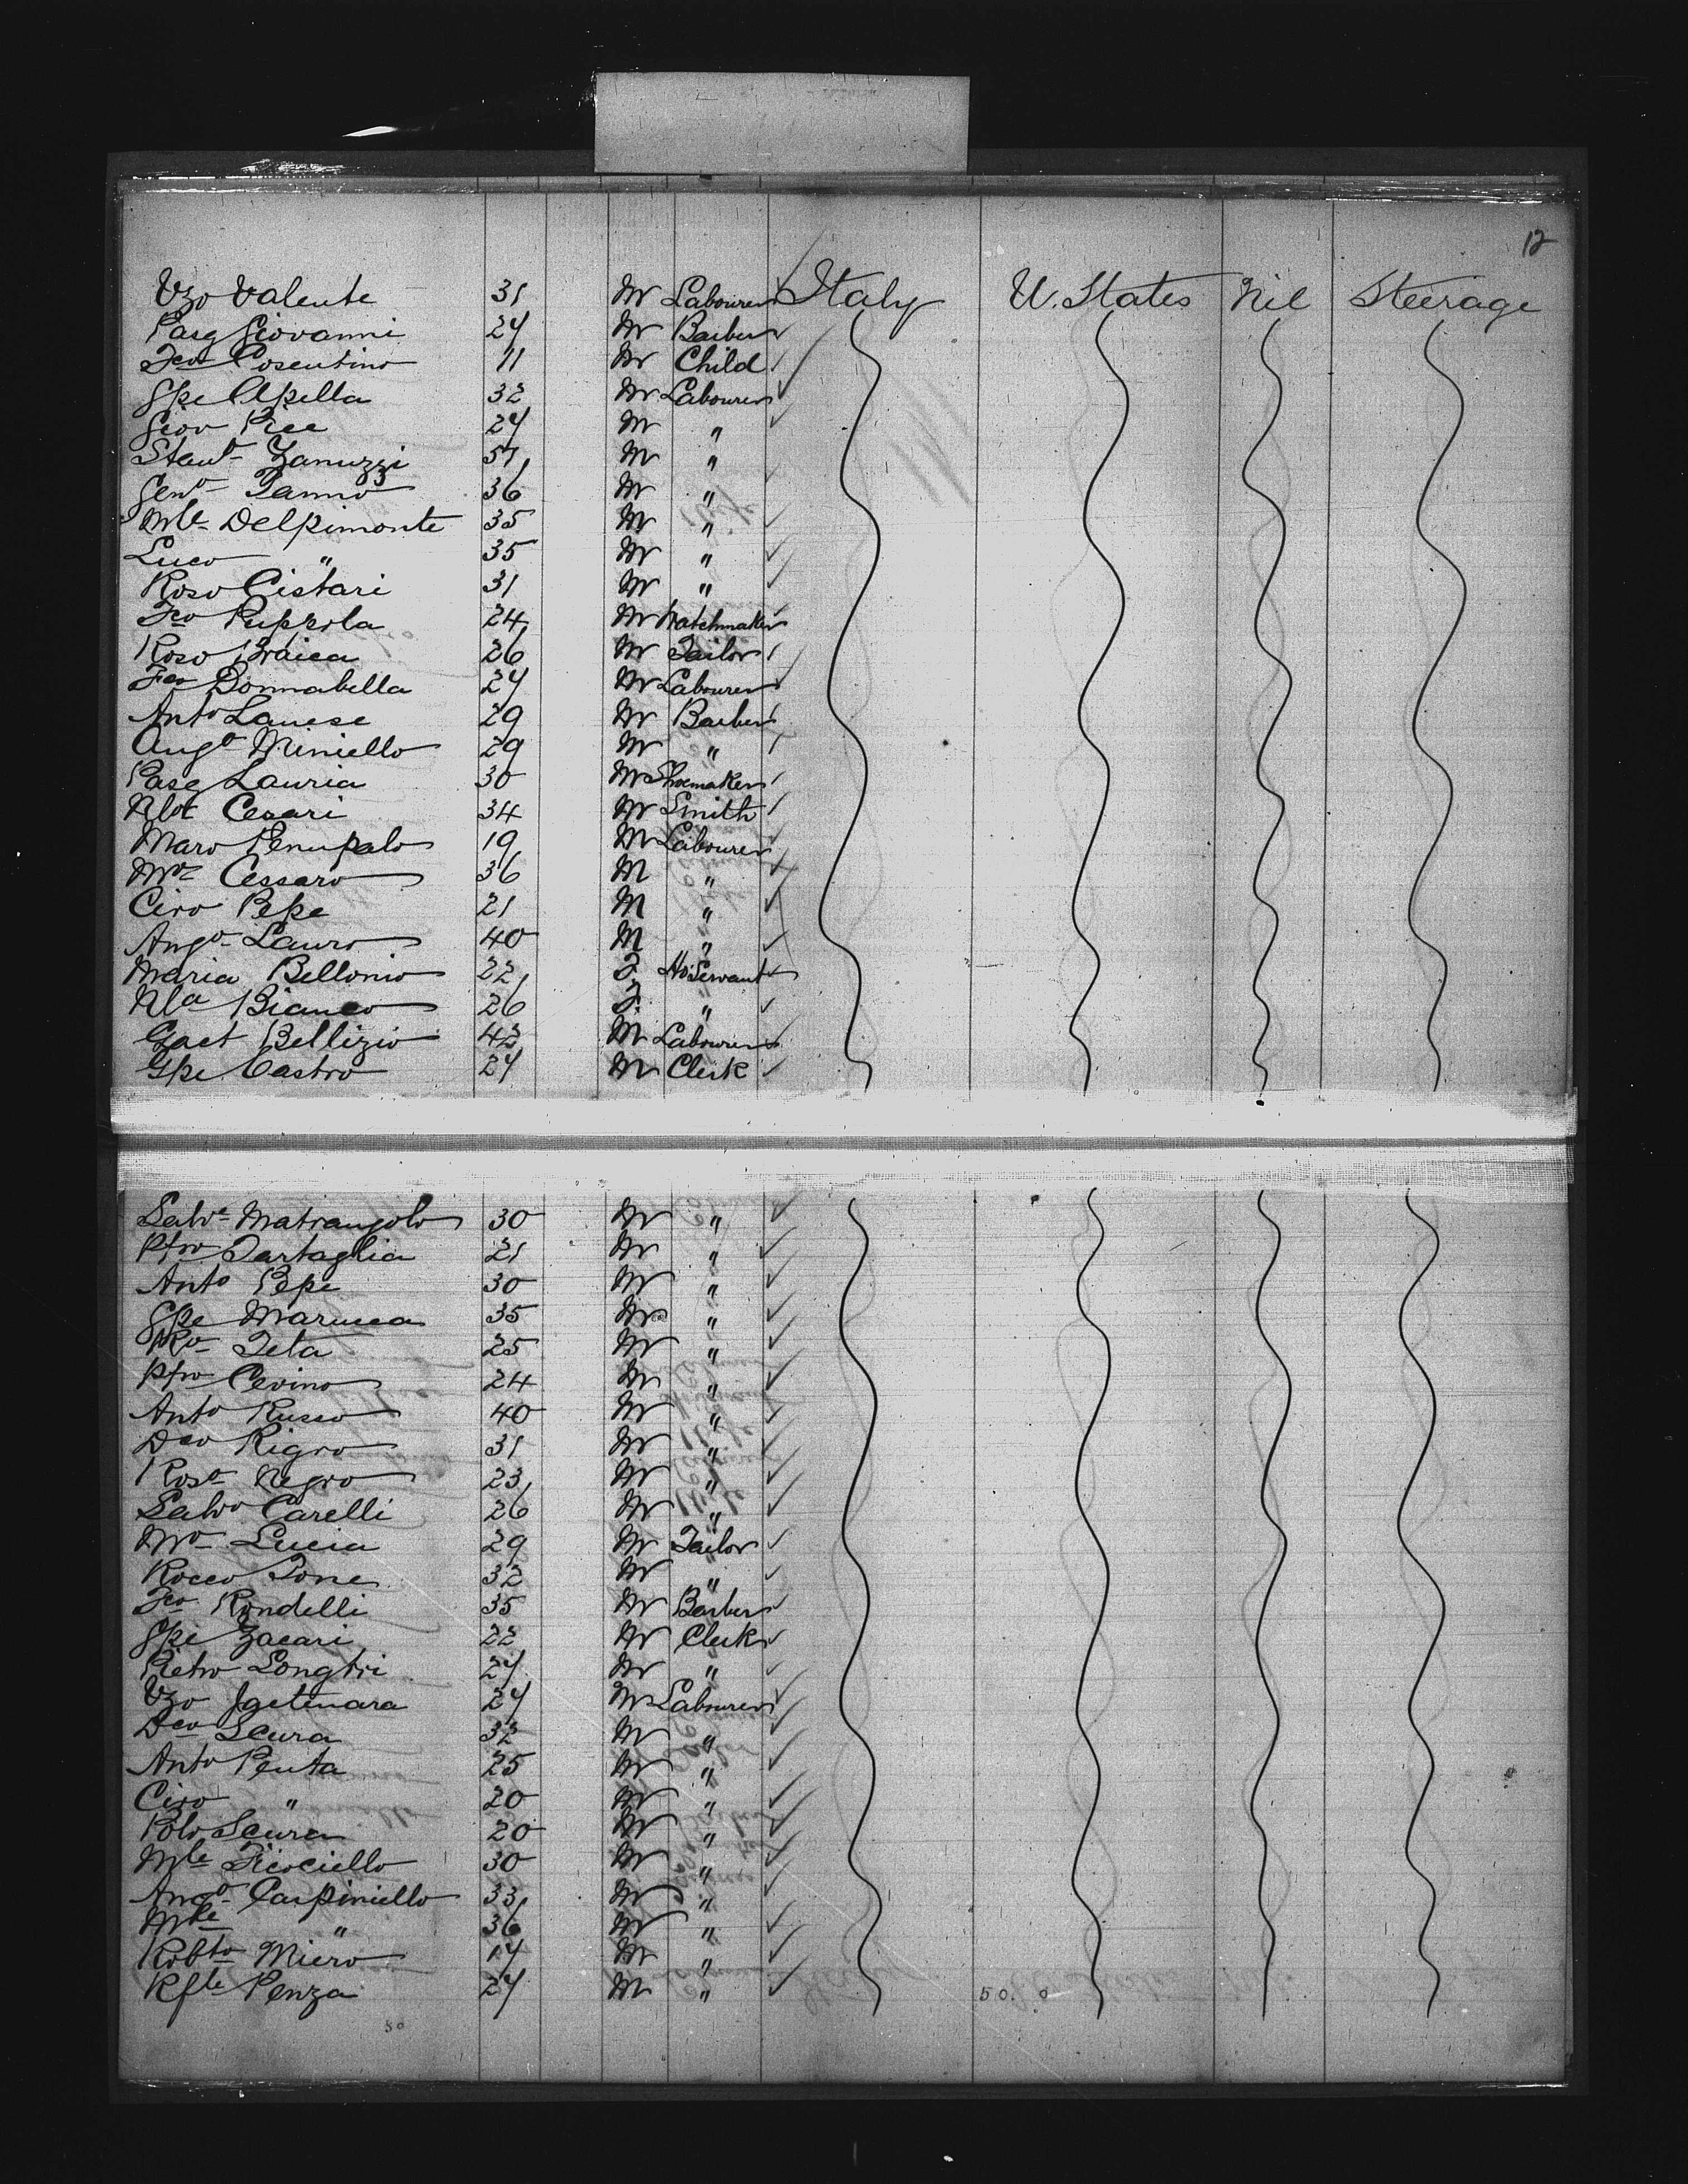 12
Vzo Valente 31 M Labourer Italy U. States Nil Steerage
Pasq Giovanni 24 M Barber
Fco Cosentino 11 M Child
Gpe Apella 32 M Labourer
Giov Pice 24 M "
Stant Zanuzzi 57 M "
Geno Ianno 36 M "
Mle Delpimonte 35 M "
Luco " 35 M "
Roso Cistari 31 M "
Fco 24 M Watchmaker
Roso Braica 26 M Tailor
Fco Donnabella 24 M Labourer
Anto Lanese 29 M Barber
Ango Miniello 29 M "
Pasq Lauria 30 M Shoemaker
Cesari 34 M Smith
Maro Penupalo 19 M Labourer
Cessaro 36 M "
Ciro Pepe 21 M "
Ango Lauro 40 M "
Maria Bellonio 22 F. Ho Servant
Nla Bianco 26 F. "
Gaet Bellizio 42 M Labourer
Gpe Castro 24 M Clerk
Salve Matrangolo 30 M "
Pfro Tartaglia 21 M "
Anto Pepe 30 M "
Gpe Marucca 35 M "
Teta 25 M "
Pfro Cevino 24 M "
Anto Russo 40 M "
Dco Rigro 31 M "
Roso Negro 23 M "
Salvo Carelli 26 M "
Mo Lucia 29 M Tailor
Rocco Tone 32 M "
Fco Rondelli 35 M Barber
Gpe Zacari 22 M Clerk
Pietro Longtri 24 M "
Vzo 24 M Labourer
Dco Scura 32 M "
Anto Penta 25 M "
Ciro " 20 M "
Polo Scura 20 M "
Mle Ficociello 30 M "
Ango Carpiniello 33 M "
Mle " 36 M "
Robto Miero 17 M "
Rfle Penza 24 M "
50. 0
50